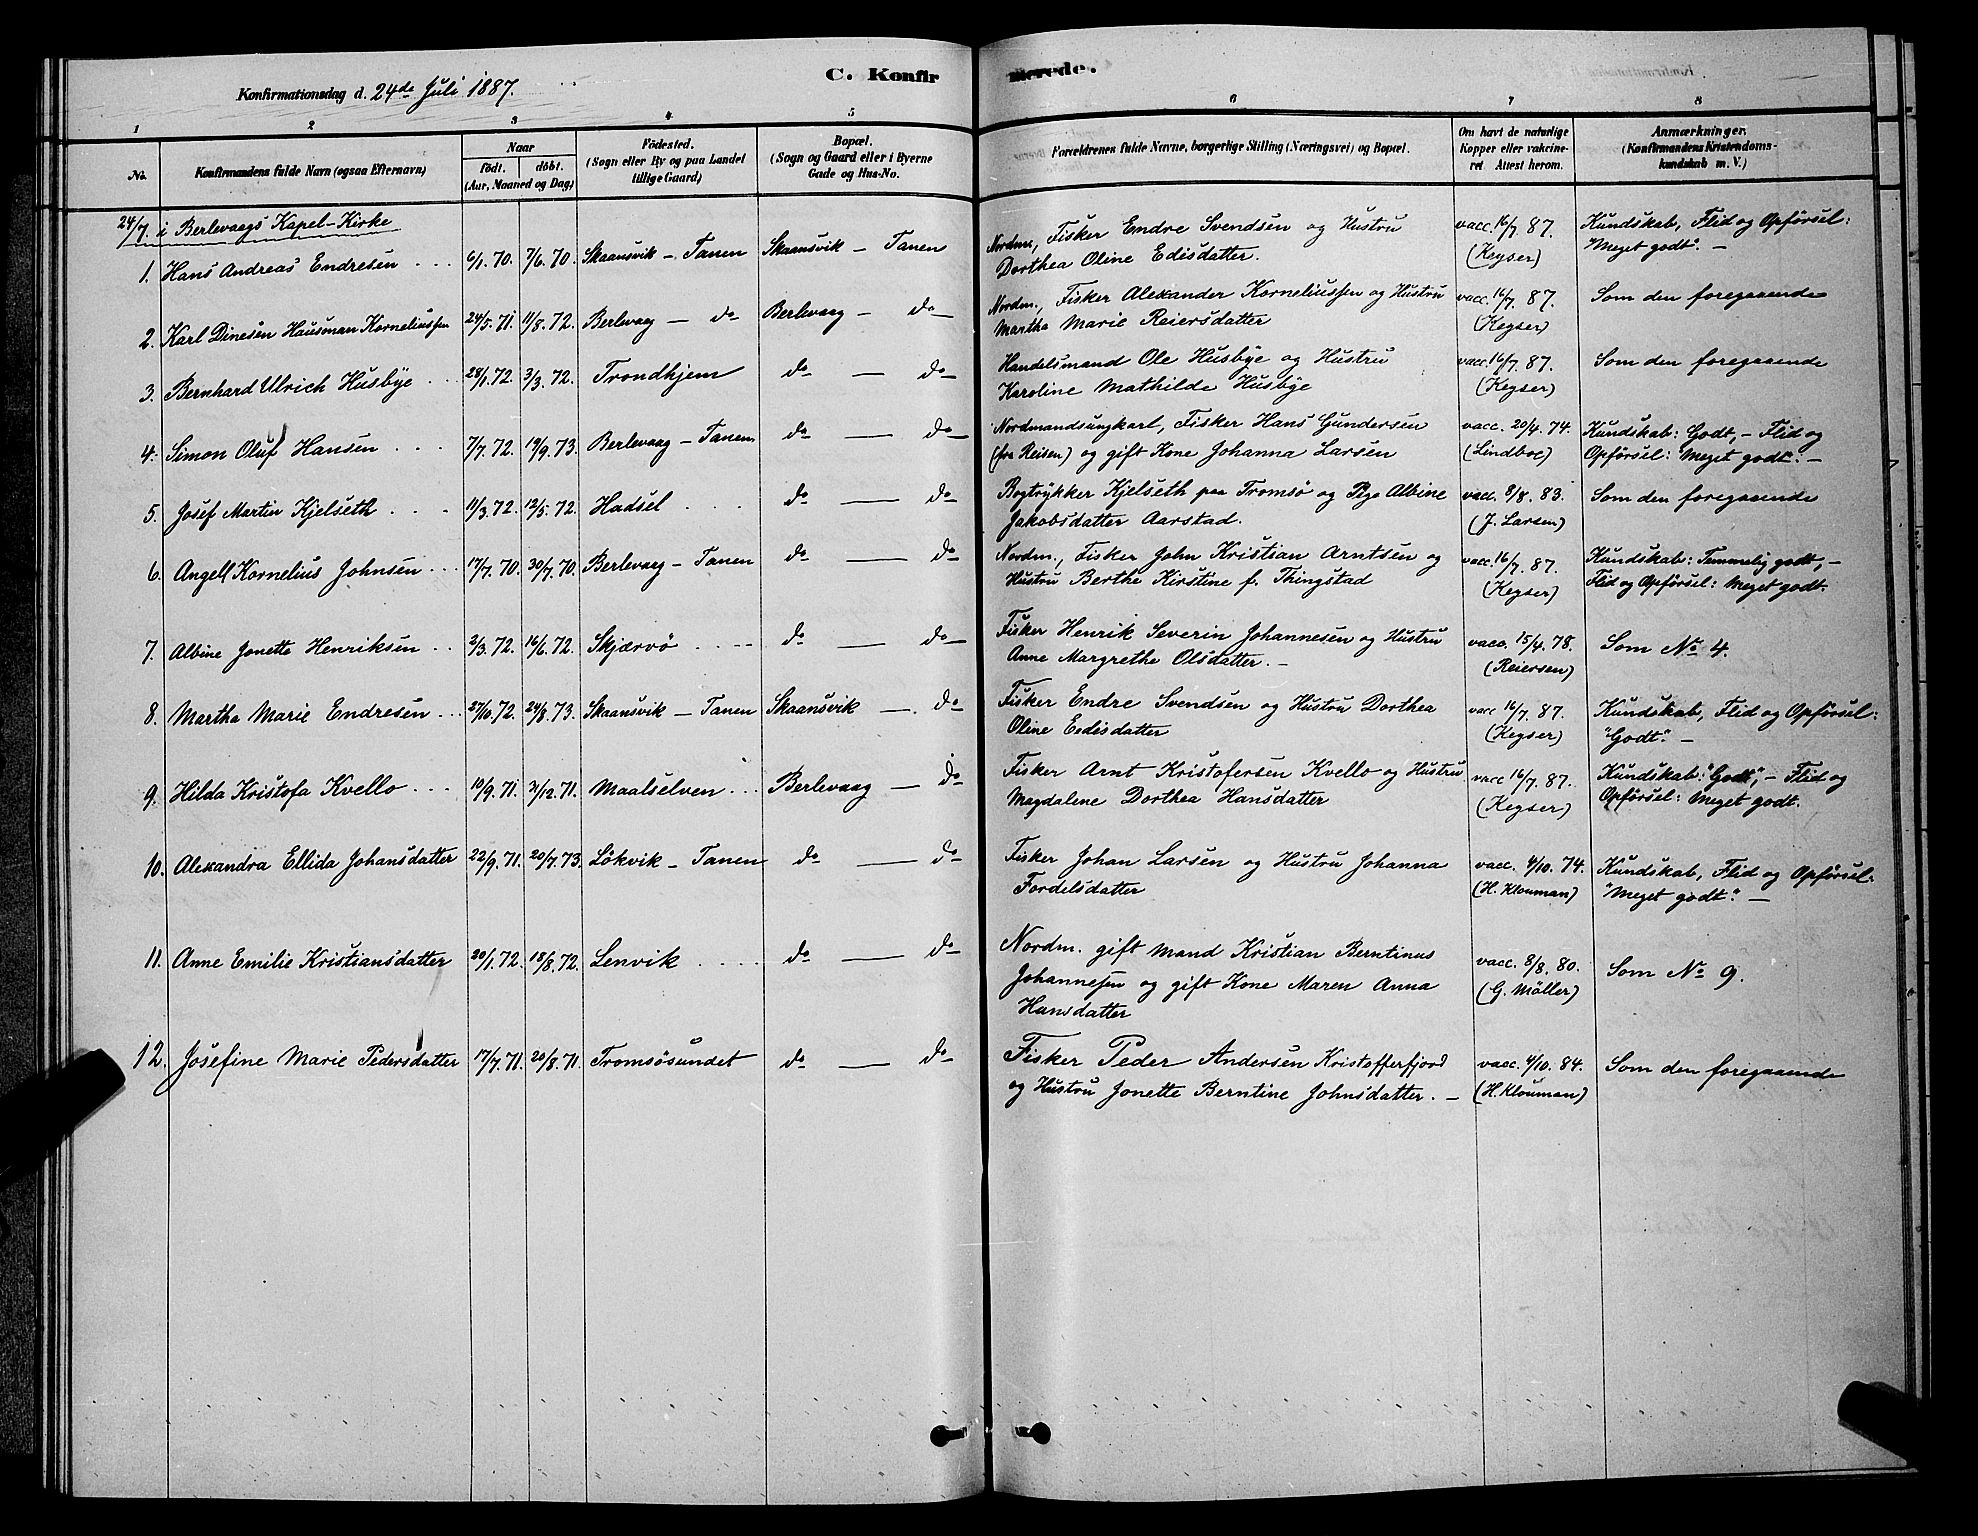 C. Konfirmerede.
Konfirmationsdag d. 24de Juli 1887.
1 2 3 4 5 6 7 8
No. Konfirmandens fulde Navn (ogsaa Efternavn) Naar født. døbt. (Aar, Maaned og Dag) Fødested. (Sogn eller By og paa Landet tillige Gaard) Bopæl. (Sogn og Gaard eller i Byerne Gade og Hus-No. Forældrenes fulde Navne, borgerlige Stilling (Næringsvei) og Bopæl. Om havt de naturlige Kopper eller vakcineret Attest herom. Anmærkninger. (Konfirmandens Kristendomskundskab m. V.)
24/7. i Berlevaags Kapel-Kirke
1. Hans Andreas Endresen 6/1.70. 7/6.70. Skaansvik - Tanen Skaansvik - Tanen Nordm., Fisker Endre Svendsen og Hustru vacc. 16/7 87. Kundskab, Flid og Opførsel:
Dorthea Oline Edisdatter. (Keyser) "Meget godt". -
2. Karl Dinesen Hausman Korneliussen 24/5.71. 11/8.72. Berlevaag - do Berlevaag - do Nordm., Fisker Alexander Korneliussen og Hustru vacc. 16/7. 87. Som den foregaaende
Martha Marie Reiersdatter (Keyser)
3. Bernhard Ulrich Husbye 28/1.72. 3/3.72. Trondhjem do - do Handelsmand Ole Husbye og Hustru vacc. 16/7. 87. Som den foregaaende
Karoline Mathilde Husbye (Keyser)
4. Simon Oluf Hansen 7/7.72. 19/9.73. Berlevaag - Tanen do - do Nordmandsungkarl, Fisker Hans Gundersen vacc. 20/4. 74. Kundskab: Godt, - Flid og
(fra Reisen) og gift Kone Johanna Larsen (Lindboe) Opførsel: Meget godt. -
5. Josef Martin Kjelseth 11/3.72. 12/5.72. Hadsel do - do Bogtrykker Kjelseth paa Tromsø og Pige Albine vacc. 8/8. 83. Som den foregaaende
Jakobsdatter Aarstad. (J. Larsen)
6. Angell Kornelius Johnsen 17/7.70. 30/7.70. Berlevaag - Tanen do - do Nordm., Fisker John Kristian Arntsen og vacc. 16/7. 87. Kundskab: Temmelig godt, -
Hustru Berthe Kirstine f. Thingstad (Keyser) Flid og Opførsel: Meget godt.
7. Albine Jonette Henriksen 2/3.72. 16/6.72. Skjærvø do - do Fisker Henrik Severin Johannesen og Hustru vacc. 15/4. 78. Som No 4.
Anne Margrethe Olsdatter. - (Reiersen)
8. Martha Marie Endresen 27/10.72. 24/8.73. Skaansvik - Tanen Skaansvik - do Fisker Endre Svendsen og Hustru Dorthea vacc 16/7. 87. Kundskab, Flid og Opførsel:
Oline Eedisdatter (Keyser) "Godt." -
9. Hilda Kristofa Kvello 19/9.71. 31/12.71. Maalselven Berlevaag - do Fisker Arnt Kristofersen Kvello og Hustru vacc 16/7. 87. Kundskab: "Godt", - Flid og
Magdalene Dorthea Hansdatter (Keyser) Opførsel: Meget godt.
10. Alexandra Ellida Johansdatter 22/9.71. 20/7.73. Løkvik - Tanen do - do Fisker Johan Larsen og Hustru Johanna vacc. 4/10. 74. Kundskab, Flid og Opførsel:
Fordelsdatter (H. Klouman) "Meget godt." -
11. Anne Emilie Kristiansdatter 20/1.72. 18/8.72. Lenvik do - do Nordm. gift mand Kristian Berntinus vacc. 8/8. 80. Som No 9.
Johannesen og gift Kone Maren Anna (G. Møller)
Hansdatter
12. Josefine Marie Pedersdatter 17/7.71. 20/8.71. Tromsøsundet do - do Fisker Peder Andersen Kristofferfjord vacc. 4/10. 84. Som den foregaaende
og Hustru Jonette Berntine Johnsdatter. - (H. Klouman)